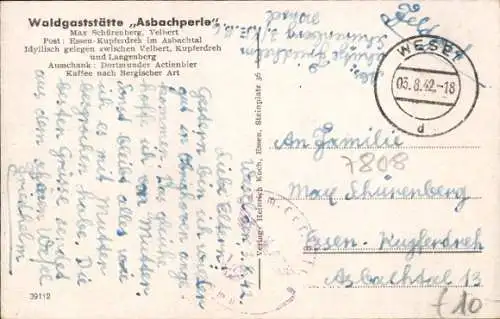 Waldgaststätte „Asbachperle"
Max Schürenberg, Velbert
Post: Essen-Kupferdreh im Asbachtal
Idyllisch gelegen zwischen Velbert, Kupferdreh
und Langenberg
Ausschank: Dortmunder Actienbier
Kaffee nach Bergischer Art
Feldpost
WESEL
03.8.42.-18
d
An Familie
7808
Max Schürenberg
Essen-Kupferdreh
Asbachtal 13
£10
Wesel, den 3.8.42
Liebe Eltern!
Gestern bin ich wieder
gut in angekommen. Das gleiche
hoffe ich von Mutter.
Sonst bleibt alles wie
ich es mit Mutter
besprochen habe. Die
besten Grüße sendet
aus dem Wesel
Friedhelm
Verlag: Heinrich Koch, Essen, Steinplatz 36
39112